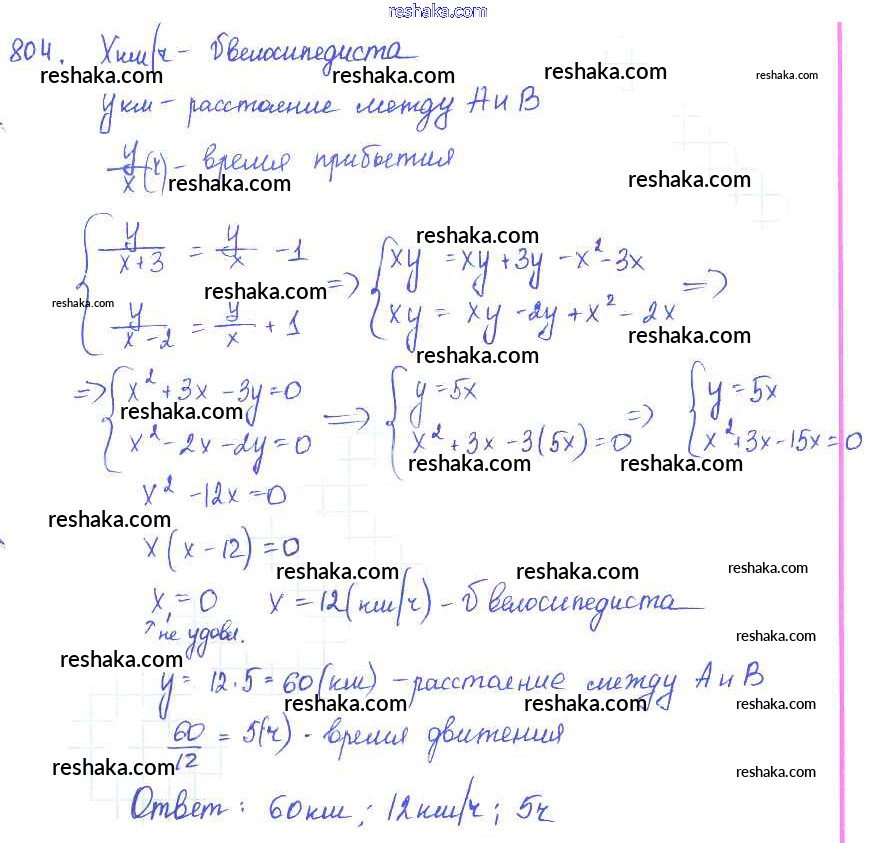 reshaka.com
804. X км/ч - υ велосипедиста
reshaka.com reshaka.com reshaka.com reshaka.com
y км - расстояние между А и В
y/x (ч) - время прибытия
reshaka.com reshaka.com
{ y/(x+3) = y/x - 1 => { xy = xy + 3y - x² - 3x =>
reshaka.com
reshaka.com reshaka.com
{ y/(x-2) = y/x + 1 { xy = xy - 2y + x² - 2x
reshaka.com
reshaka.com
=> { x² + 3x - 3y = 0 => { y = 5x => { y = 5x
reshaka.com
{ x² - 2x - 2y = 0 { x² + 3x - 3(5x) = 0 { x² + 3x - 15x = 0
reshaka.com reshaka.com
x² - 12x = 0
reshaka.com
x(x - 12) = 0
reshaka.com reshaka.com reshaka.com
x₁ = 0 x = 12 (км/ч) - υ велосипедиста
↑ не удовл.
reshaka.com
reshaka.com
y = 12·5 = 60 (км) - расстояние между А и В
reshaka.com reshaka.com reshaka.com
60/12 = 5(ч) - время движения
reshaka.com reshaka.com
Ответ: 60 км; 12 км/ч; 5 ч